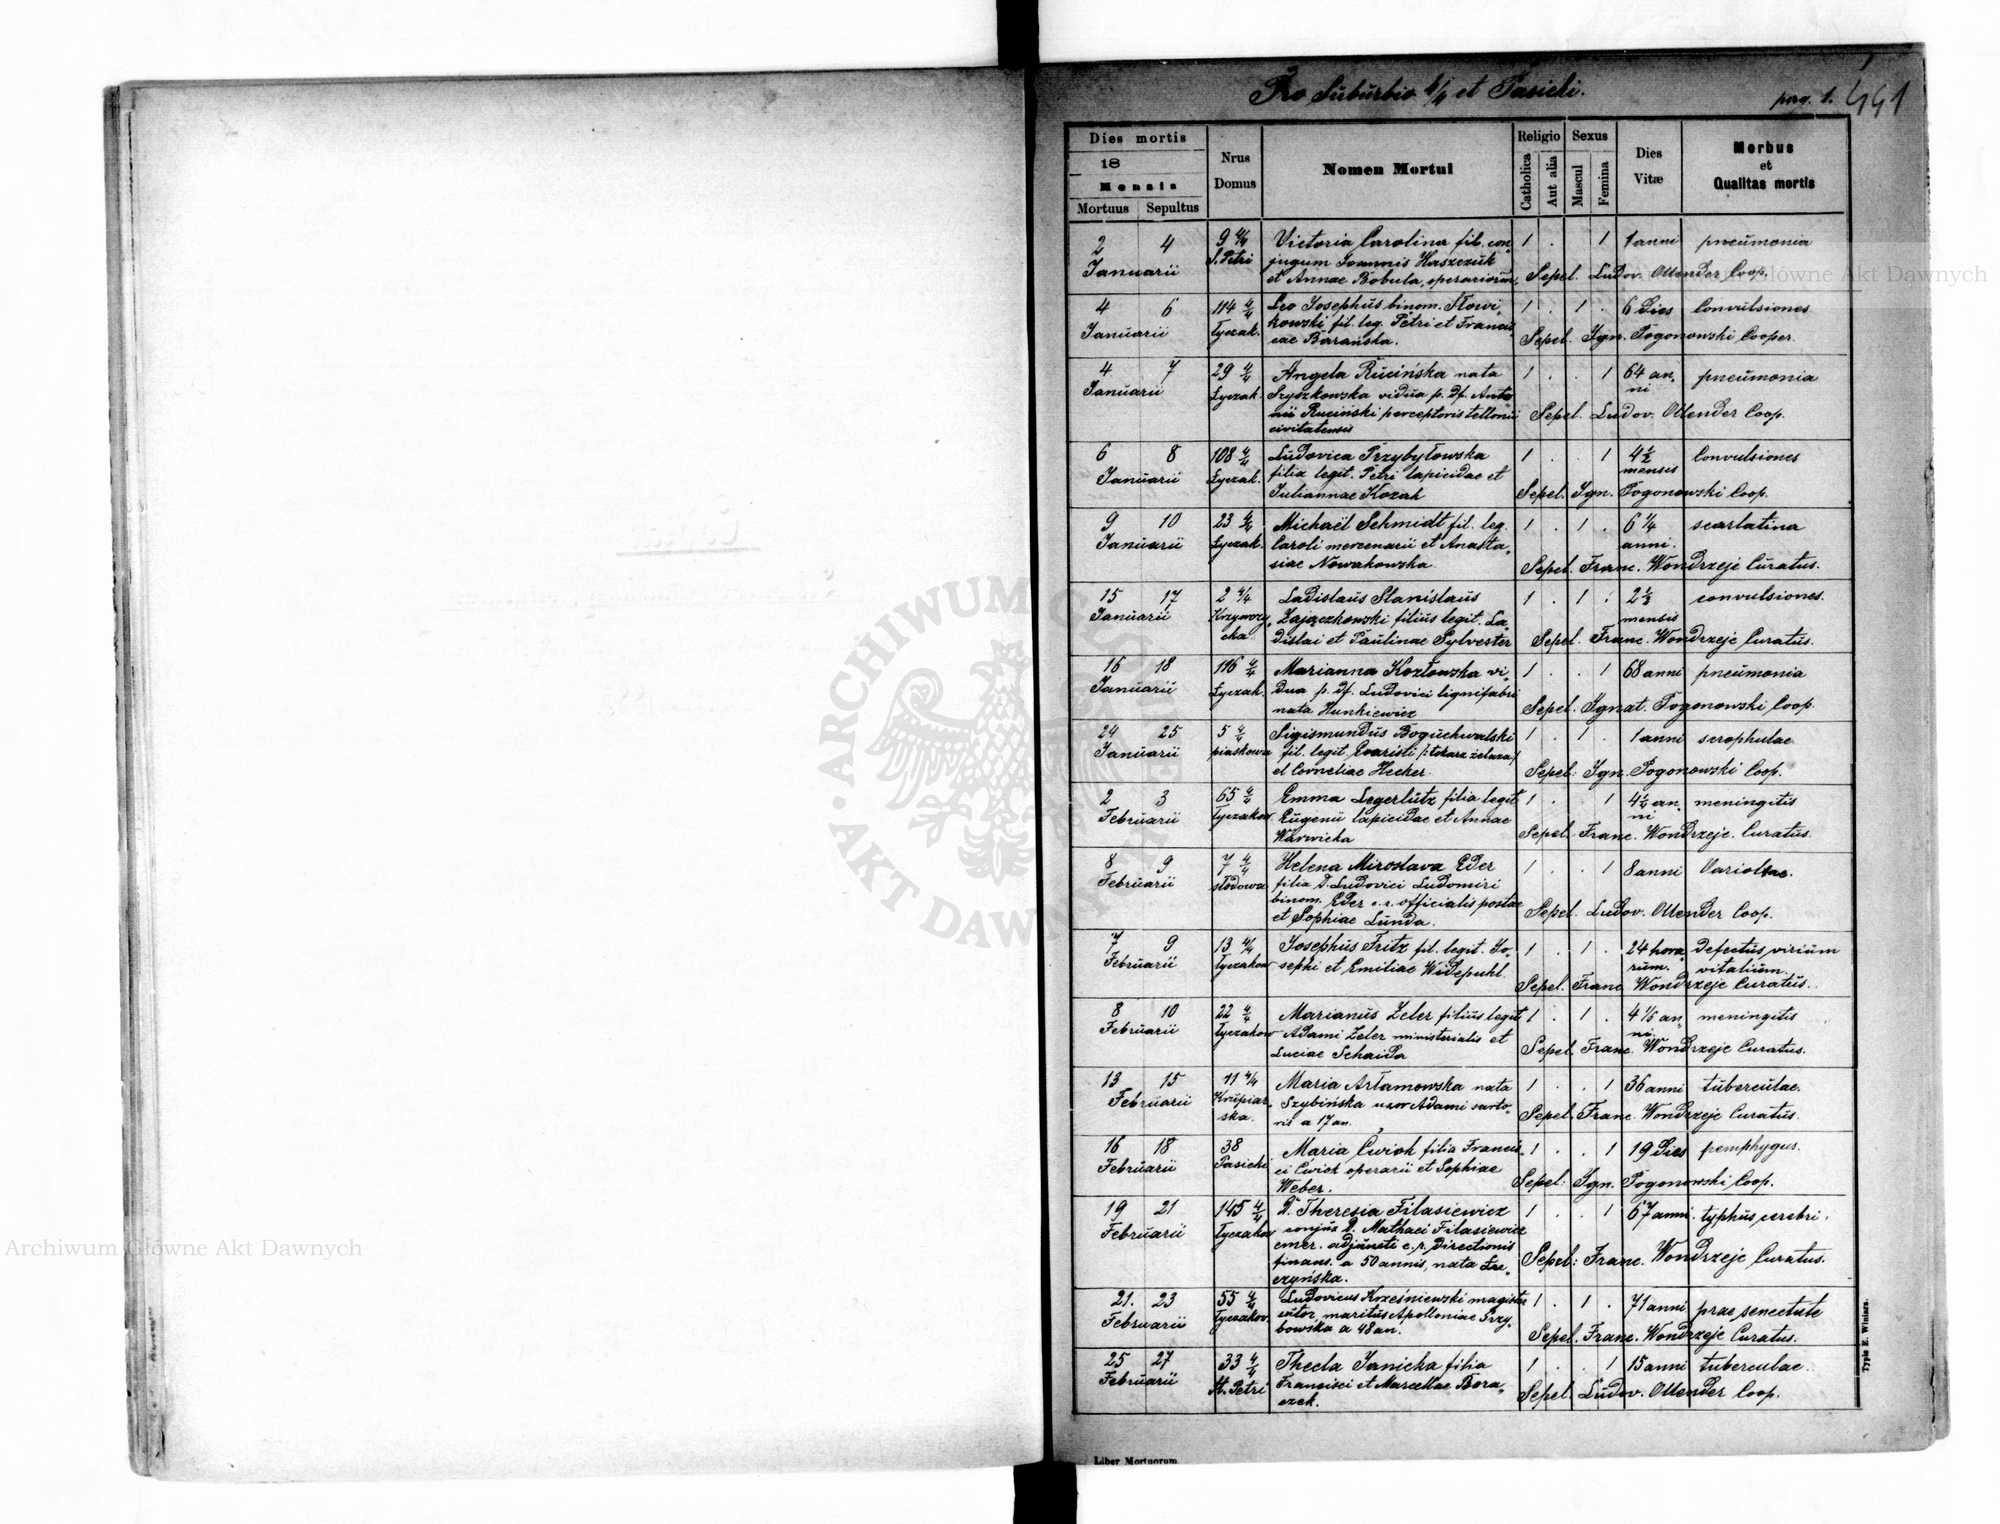 Pro Suburbio 4/4 et Pasieki.
pag. 1. 441
Dies mortis
18
Mensis
Mortuus Sepultus
Nrus Domus
Nomen Mortui
Religio
Catholica
Aut alia
Sexus
Mascul
Femina
Dies Vitæ
Morbus
et
Qualitas mortis
2 4 9 4/4 Victoria Carolina fil. con„ 1 . . 1 1 anni pneumonia
Januarii S. Petri jugum Joannis Haszczuk
et Annae Bobula, operariorum, Sepel. Ludov. Ollender Coop.
4 6 114 4/4 Leo Josephus binom. Nowi„ 1 . 1 . 6 Dies Convulsiones
Januarii Łyczak. kowski fil. leg. Petri et Francis
cae Barańska. Sepel. Ign. Pogonowski Cooper.
4 7 29 4/4 Angela Rucińska nata 1 . . 1 64 an„ pneumonia
Januarii Łyczak. Szyszkowska vidua p. Df. Anto ni
nii Ruciński perceptoris tellonii Sepel. Ludov. Ollender Coop.
civitatensis
6 8 108 4/4 Ludovica Przybyłowska 1 . . 1 4 1/2 Convulsiones
Januarii Łyczak. filia legit. Petri lapicidae et mensis
Juliannae Kozak Sepel. Ign. Pogonowski Coop.
9 10 23 4/4 Michaël Schmidt fil. leg. 1 . 1 . 6 1/4 scarlatina
Januarii Łyczak. Caroli mercenarii et Anasta„ anni.
siae Nowakowska Sepel. Franc. Wondrzeje Curatus.
15 17 2 4/4 Ladislaus Stanislaus 1 . 1 . 2 1/2 convulsiones.
Januarii Krzywczy„ Zajączkowski filius legit. La„ mensis
cka. dislai et Paulinae Sylvester Sepel. Franc. Wondrzeje Curatus.
16 18 116 4/4 Marianna Kozłowska vi„ 1 . . 1 68 anni pneumonia
Januarii Łyczak. dua p. Df. Ludovici lignifabri
nata Hunkiewicz Sepel. Ignat. Pogonowski Coop.
24 25 5 4/4 Sigismundus Boguchwalski 1 . 1 . 1 anni scrophulae
Januarii piaskowa fil. legit. Evaristi /:tokarz żelaza:/
et Corneliae Hecker. Sepel: Ign. Pogonowski Coop.
2 3 65 4/4 Emma Legerlütz filia legit 1 . . 1 4 1/4 an„ meningitis
Februarii Łyczakow Eugenii lapicidae et Annae ni
Warwicka Sepel. Franc. Wondrzeje. Curatus.
8 9 7 4/4 Helena Miroslava Eder 1 . . 1 8 anni Variolae.
Februarii słodowa filia D. Ludovici Ludomiri
binom. Eder c. r. officialis postae
et Sophiae Lunda. Sepel. Ludov. Ollender Coop.
7 9 13 4/4 Josephus Fritz fil. legit. Jo„ 1 . 1 . 24 hora„ Defectus virium
Februarii Łyczakow sephi et Emiliae Widepuhl. rum. vitalium.
Sepel. Franc Wondrzeje Curatus.
8 10 22 4/4 Marianus Zeler filius legit 1 . 1 . 4 1/5 an„ meningitis
Februarii Łyczakow Adami Zeler ministerialis et ni.
Luciae Schaida Sepel. Franc. Wondrzeje Curatus.
13 15 11 4/4 Maria Artamowska nata 1 . . 1 36 anni tuberculae.
Februarii Krupiar„ Szybińska uxor Adami sarto„
ska. ris a 17 an. Sepel. Franc. Wondrzeje Curatus.
16 18 38 Maria Ćwiok filia Francis„ 1 . . 1 19 Dies pemphygus.
Februarii Pasieki ci Ćwiok operarii et Sophiae
Weber. Sepel: Ign. Pogonowski Coop.
19 21 145 4/4 D. Theresia Filasiewicz 1 . . 1 67 anni. typhus cerebri.
Februarii Łyczakow conjux D. Mathaei Filasiewicz
emer. adjuncti c. r. Directionis
finans. a 50 annis, nata Łu„ Sepel: Franc. Wondrzeje Curatus.
czyńska.
21. 23 55 4/4 Ludovicus Krześniewski magister 1 . 1 . 71 anni prae senectute
Februarii Łyczakow. sutor, maritus Apolloniae Przy„
bowska a 48 an. Sepel. Franc. Wondrzeje Curatus.
25 27 33 4/4 Thecla Janicka filia 1 . . 1 15 anni tuberculae.
Februarii St. Petri Francisci et Marcellae Bora„
czek. Sepel. Ludov. Ollender Coop.
Liber Mortuorum
Typis E. Winiarz.
Archiwum Główne Akt Dawnych
Archiwum Główne Akt Dawnych
ARCHIWUM GŁÓWNE AKT DAWNYCH